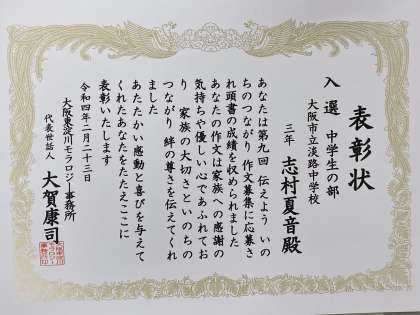 表彰状
入選 中学生の部
大阪市立淡路中学校
三年 志村夏音殿
あなたは第九回 伝えよう いの
ちのつながり 作文募集に応募さ
れ頭書の成績を収められました
あなたの作文は家族への感謝の
気持ちや優しい心であふれてお
り 家族の大切さといのちの
つながり 絆の尊さを伝えてくれ
ました
あたたかい感動と喜びを与えて
くれたあなたをたたえここに
表彰いたします
令和四年二月二十三日
大阪東淀川モラロジー事務所
代表世話人 大賀康司